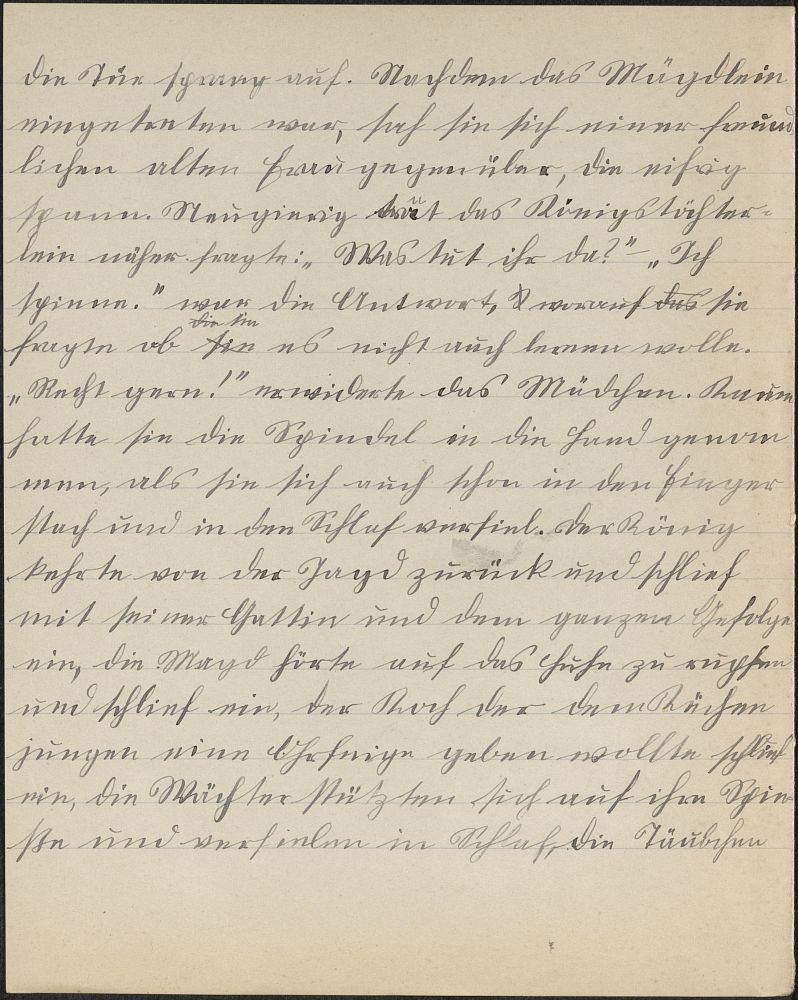 die Türe sprang auf. Nachdem das Mägdlein
eingetreten war, sah sie sich einer freund
lichen alten Frau gegenüber, die eifrig
spann. Neugierig trat das Königstöchter-
lein näher fragte: „Was tut ihr da?" – „Ich
spinne." war die Antwort, worauf das sie
die sie
fragte ob sie es nicht auch lernen wolle.
„Recht gern!" erwiderte das Mädchen. Kaum
hatte sie die Spindel in die Hand genom
men, als sie sich auch schon in den Finger
stach und in den Schlaf verfiel. Der König
kehrte von der Jagd zurück und schlief
mit seiner Gattin und dem ganzen Gefolge
ein, die Magd hörte auf das Huhn zu rupfen
und schlief ein, der Koch der dem Küchen
jungen eine Ohrfeige geben wollte schlief
ein, die Wächter stützten sich auf ihre Spie
ße und verfielen in Schlaf, die Täubchen